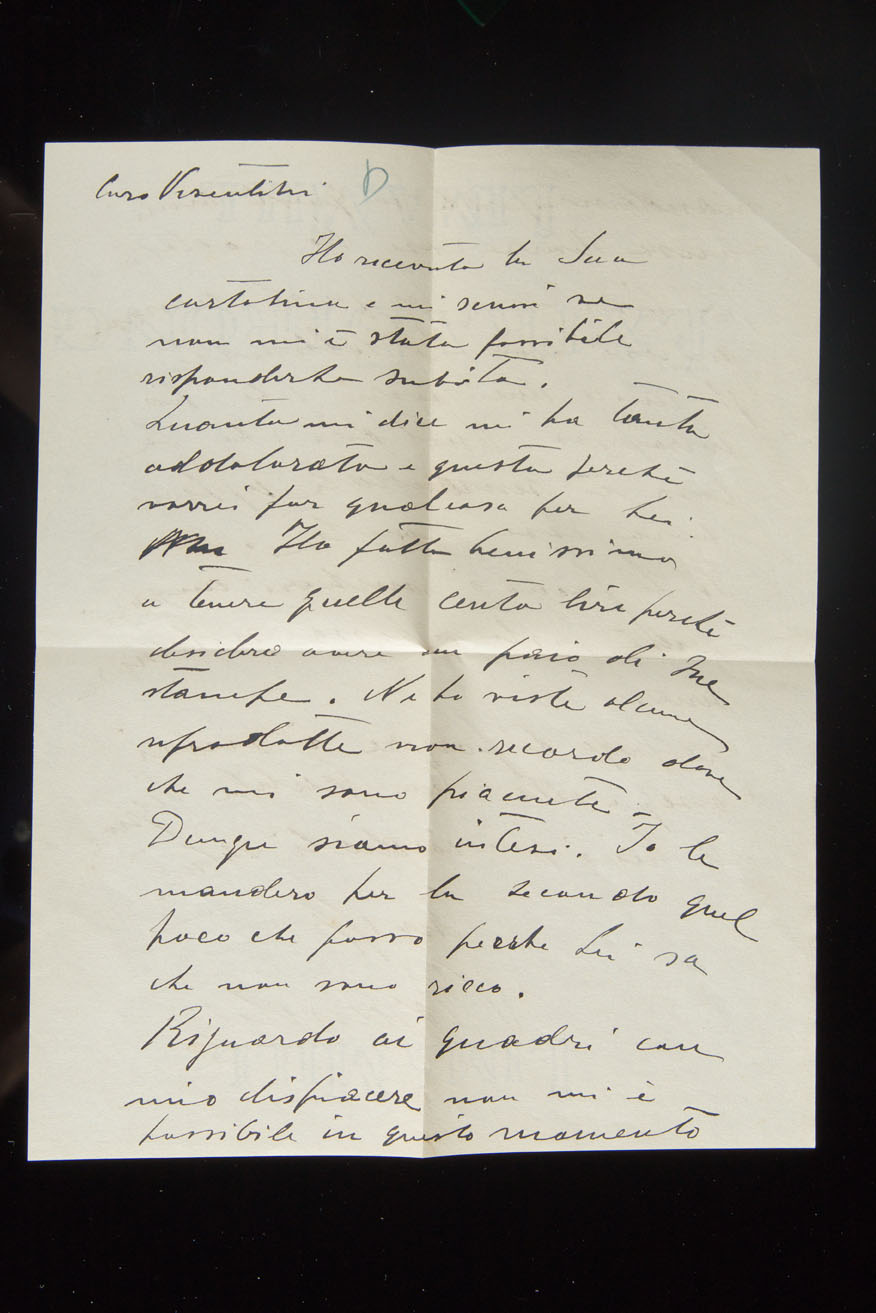 Caro Visentini
Ho ricevuta la Sua
cartolina e mi scusi se
non mi è stato possibile
risponderle subito.
Quanto mi dice mi ha tanto
addolorato e questo perchè
vorrei far qualcosa per Lei.
Ha fatto benissimo
a tenere quelle cento lire perchè
desidero avere un paio di sue
stampe. Ne ho viste alcune
riprodotte non ricordo dove
che mi sono piaciute.
Dunque siamo intesi. Io le
manderò per la seconda quel
poco che posso perchè Lei sa
che non sono ricco.
Riguardo ai quadri con
mio dispiacere non mi è
possibile in questo momento